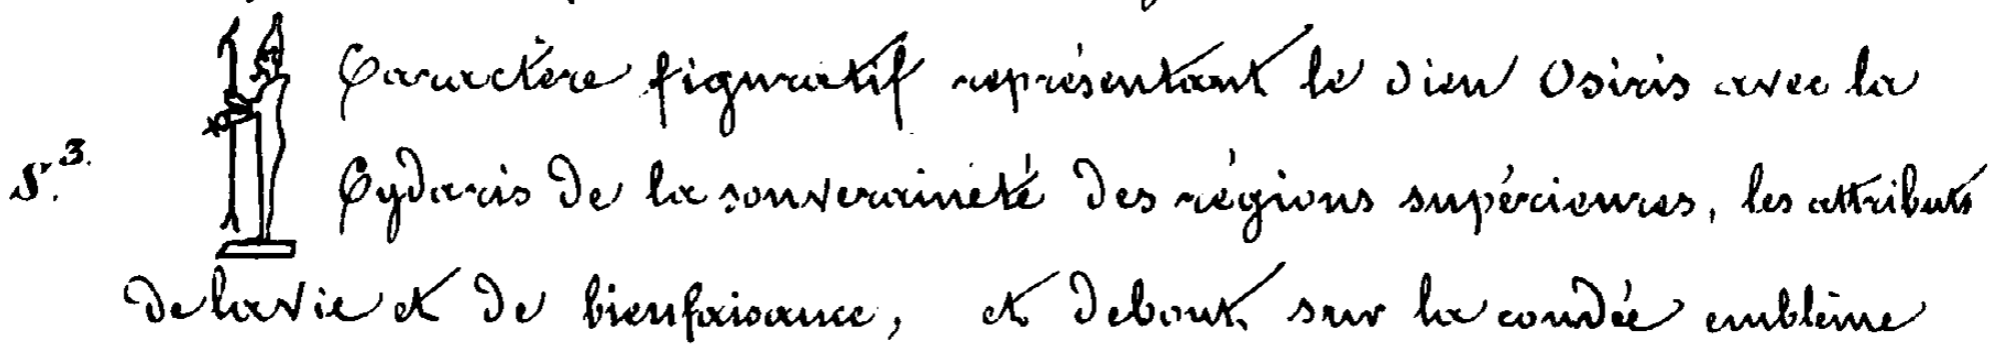 Caractère figuratif représentant le dieu Osiris avec la
S.3. Cydaris de la souveraineté des régions supérieures, les attributs
de la vie et de bienfaisance, et debout, sur la coudée emblème